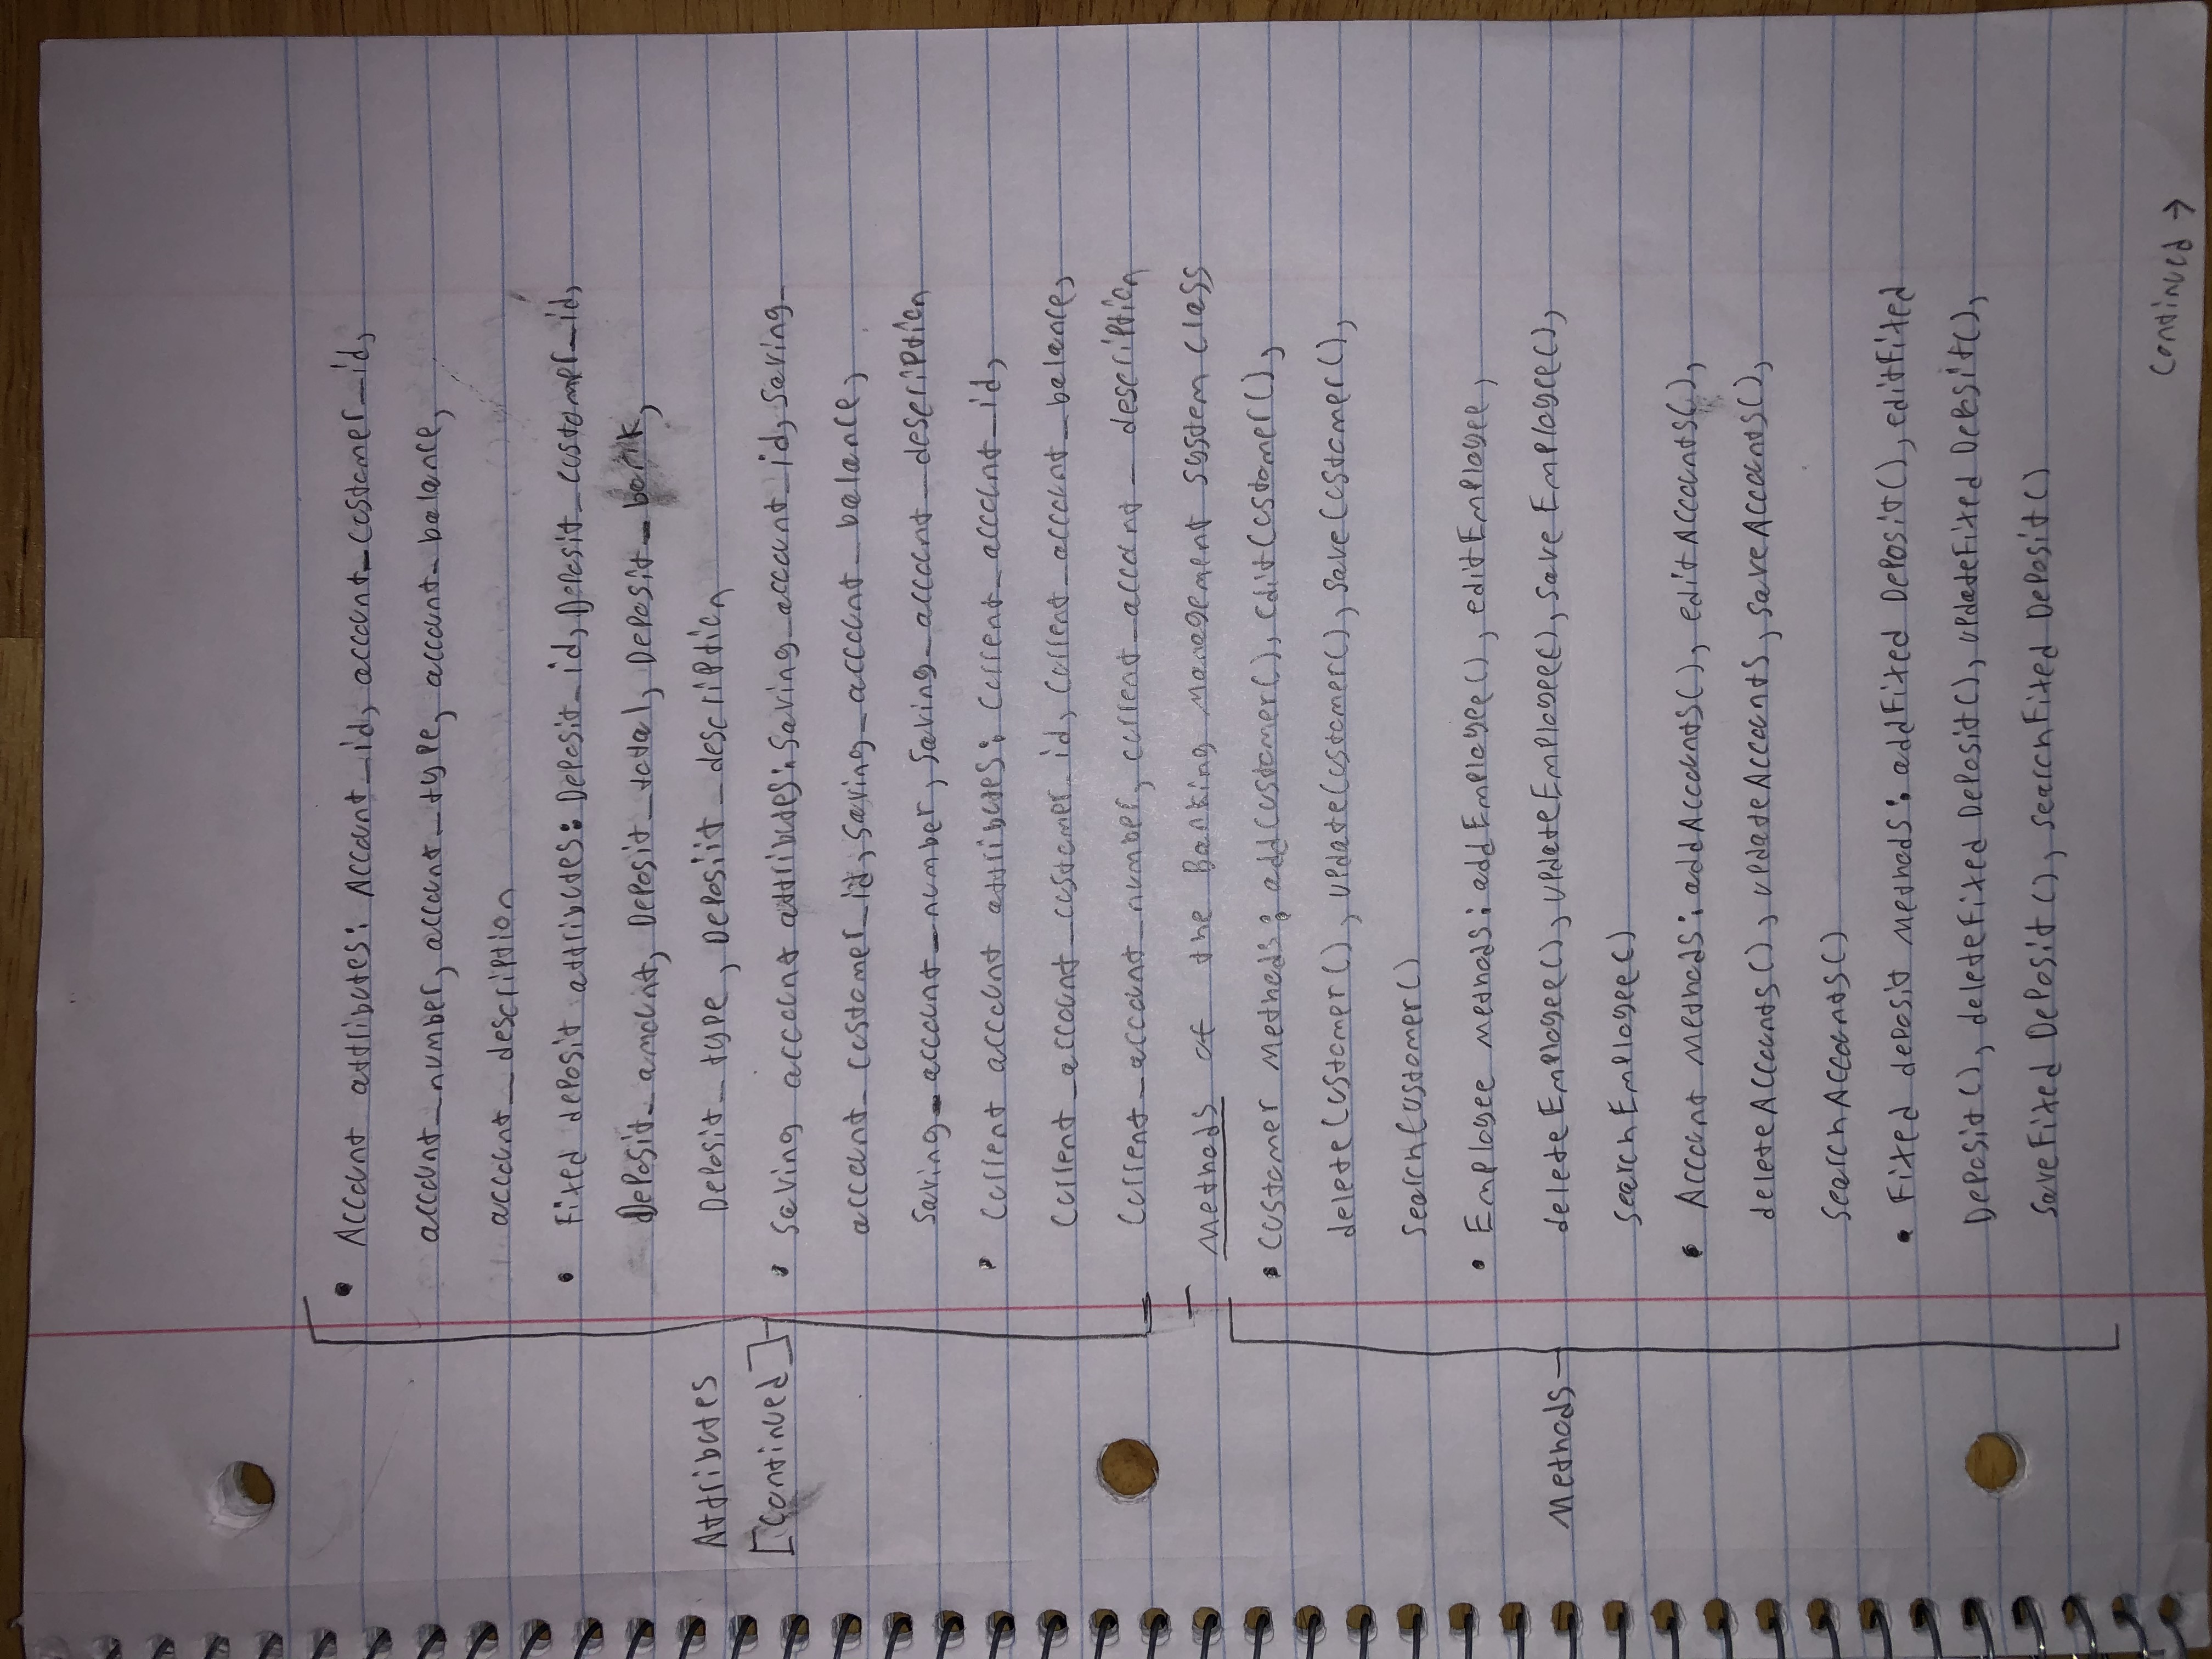 Account attributes: Account_id, account_customer_id,
account_number, account_type, account_balance,
account_description
Fixed deposit attributes: Deposit_id, Deposit_customer_id,
Deposit_amount, Deposit_total, Deposit_bank,
Deposit_type, Deposiit_description
Attributes
[Continued]
Saving account attributes: Saving_account_id, Saving_
account_customer_id, Saving_account_balance,
Saving_account_number, Saving_account_description
Current account attributes: Current_account_id,
Current_account_customer_id, Current_account_balance,
Current_account_number, current_account_description
Methods of the Banking Management System Class
Customer Methods: addCustomer(), editCustomer(),
deleteCustomer(), updateCustomer(), saveCustomer(),
searchCustomer()
Employee Methods: addEmployee(), editEmployee,
deleteEmployee(), updateEmployee(), saveEmployee(),
searchEmployee()
Methods
Account Methods: addAccounts(), editAccounts(),
deleteAccounts(), updateAccounts, saveAccounts(),
searchAccounts()
Fixed deposit Methods: addFixed Deposit(), editFixed
Deposit(), deleteFixed Deposit(), updateFixed Deposit(),
saveFixed Deposit(), searchFixed Deposit()
Continued →